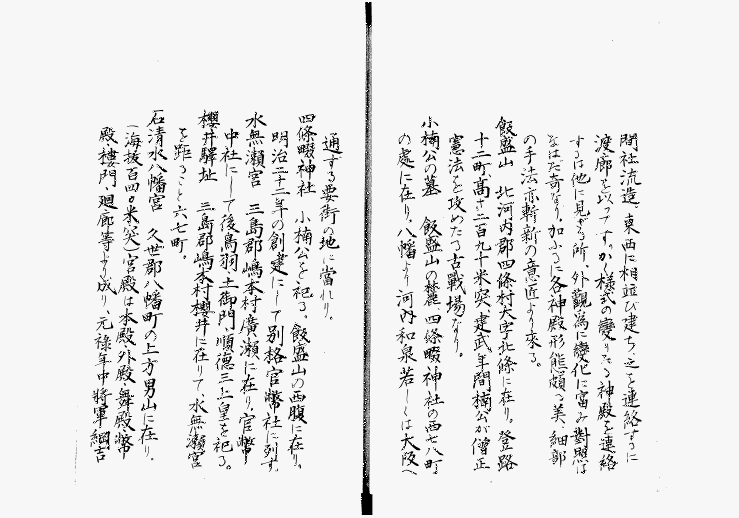 間社流造、東西に相並び建ち、之を連絡するに
渡廊を以てす。かく様式の變りたる神殿を連絡
するは他に見ざる所、外觀為に變化に富み對照は
なはだ奇なり。加ふるに各神殿形態頗る美、細部
の手法亦斬新の意匠より來る。
飯盛山 北河内郡四條村大字北條に在り。登路
十二町、高さ二百九十米突、建武年間楠公が僧正
憲法を攻めたる古戰場なり。
小楠公の墓 飯盛山の麓、四條畷神社の西七八町。
の處に在り。八幡より河内和泉若しくは大阪へ
通する要街の地に當れり。
四條畷神社 小楠公を祀る。飯盛山の西腹に在り。
明治二十二年の創建にして別格官幣社に列す。
水無瀬宮 三島郡嶋本村廣瀬に在り、官幣
中社にして後鳥羽、土御門、順德三上皇を祀る。
櫻井驛址 三島郡嶋本村櫻井に在りて、水無瀬宮
を距ること六七町。
石清水八幡宮 久世郡八幡町の上方男山に在り。
(海抜百四〇米突)宮殿は本殿、外殿、舞殿、幣
殿、樓門、廻廊等より成り、元祿年中將軍綱吉